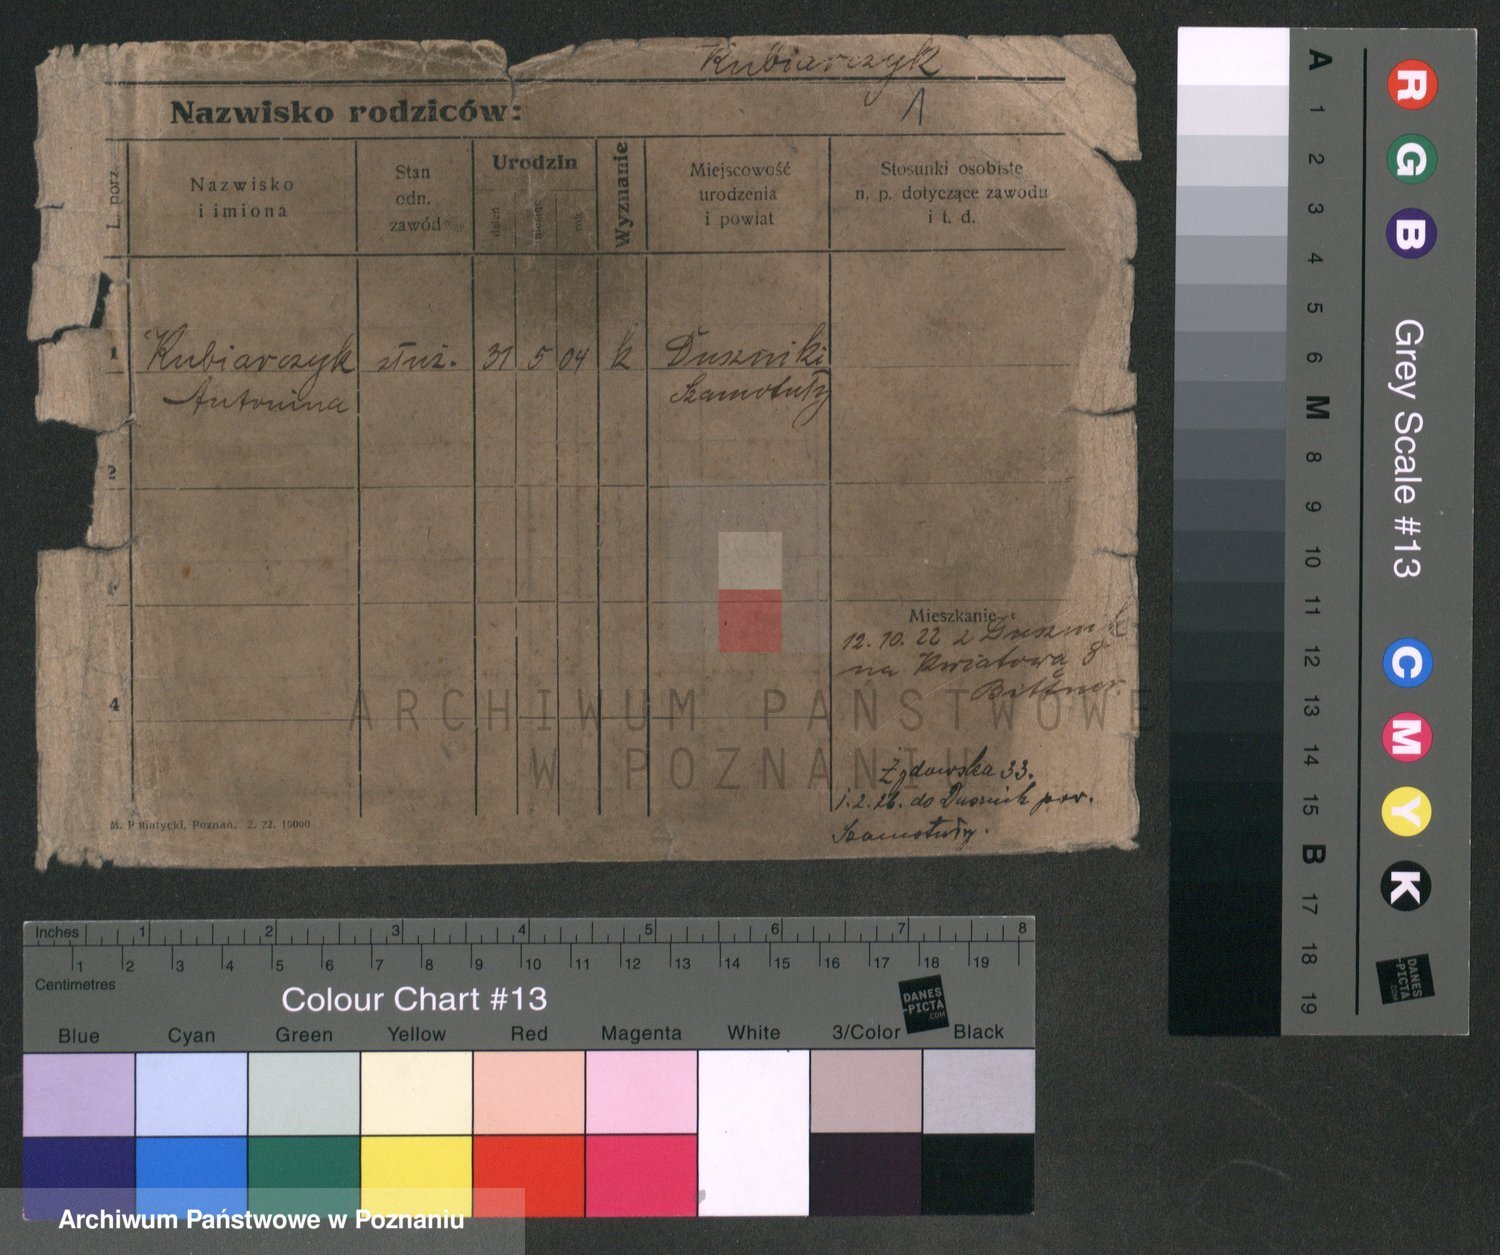 Kubiarczyk
Nazwisko rodziców:
1
L. porz.
Nazwisko
i imiona
Stan
odn.
zawód
Urodzin
dzień
miesiąc
rok
Wyznanie
Miejscowość
urodzenia
i powiat
Stosunki osobiste
n. p. dotyczące zawodu
i t. d.
1 Kubiarczyk służ. 31 5 04 k Duszniki
Antonina Szamotuły
2
4
Mieszkanie
12. 10. 22 z Dusznik
na Kwiatową 8
Bittner.
33.
1. 2. 26. do Dusznik pow.
Szamotuły.
M. Poznań. 2. 22. 10000
ARCHIWUM PAŃSTWOWE
W POZNANIU
Inches 1 2 3 4 5 6 7 8
1 2 3 4 5 6 7 8 9 10 11 12 13 14 15 16 17 18 19
Centimetres
Colour Chart #13
DANES
-PICTA
.COM
Blue Cyan Green Yellow Red Magenta White 3/Color Black
Archiwum Państwowe w Poznaniu
A 1 2 3 4 5 6 M 8 9 10 11 12 13 14 15 B 17 18 19
R G B
Grey Scale #13
C M Y K
DANES
-PICTA
.COM